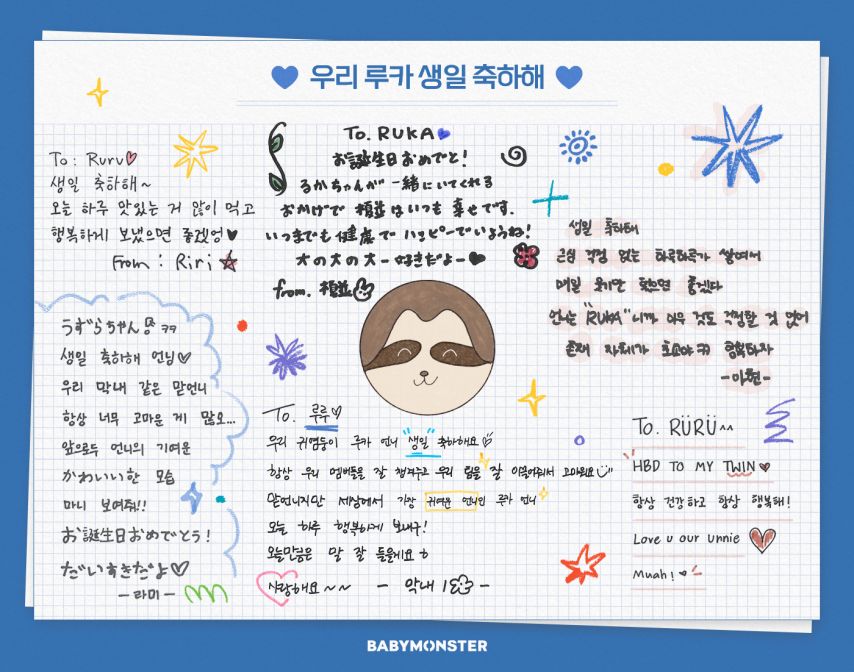 우리 루카 생일 축하해
To : Ruru
생일 축하해~
오늘 하루 맛있는 거 많이 먹고
행복하게 보냈으면 좋겠엉
From : Riri
To. RUKA
お誕生日おめでと!
るかちゃんが一緒にいてくれる
おかげで 類並はいつも 幸せです.
いつまでも健康でハッピーでいようね!
大の大の大ー好きだよー
from.
생일 축하해
근심 걱정 없는 하루하루가 쌓여서
매일 웃기만 했으면 좋겠다
언니는 "RUKA"니까 아무 것도 걱정할 것 없어
존재 자체가 최고야ㅋㅋ 행복하자
-아현-
うずらちゃん ㅋㅋ
생일 축하해 언님
우리 막내 같은 맏언니
항상 너무 고마운 게 많오...
앞으로두 언니의 기여운
かわいい한 모습
마니 보여줘!!
お誕生日おめでとう!
だいすきだよ
-라미-
To. 루루
우리 귀염둥이 루카 언니 "생일" 축하해요
항상 우리 멤버들을 잘 챙겨주고 우리 팀을 잘 이끌어줘서 고마워요
맏언니지만 세상에서 가장 귀여운 언니인 루카 언니
오늘 하루 행복하게 보내구!
오늘만큼은 말 잘 들을게요 ㅎ
사랑해요 ~~ - 막내 -
To. RÜRÜ^^
HBD TO MY TWIN
항상 건강하고 항상 행복해!
Love u our unnie
Muah!
BABYMONSTER